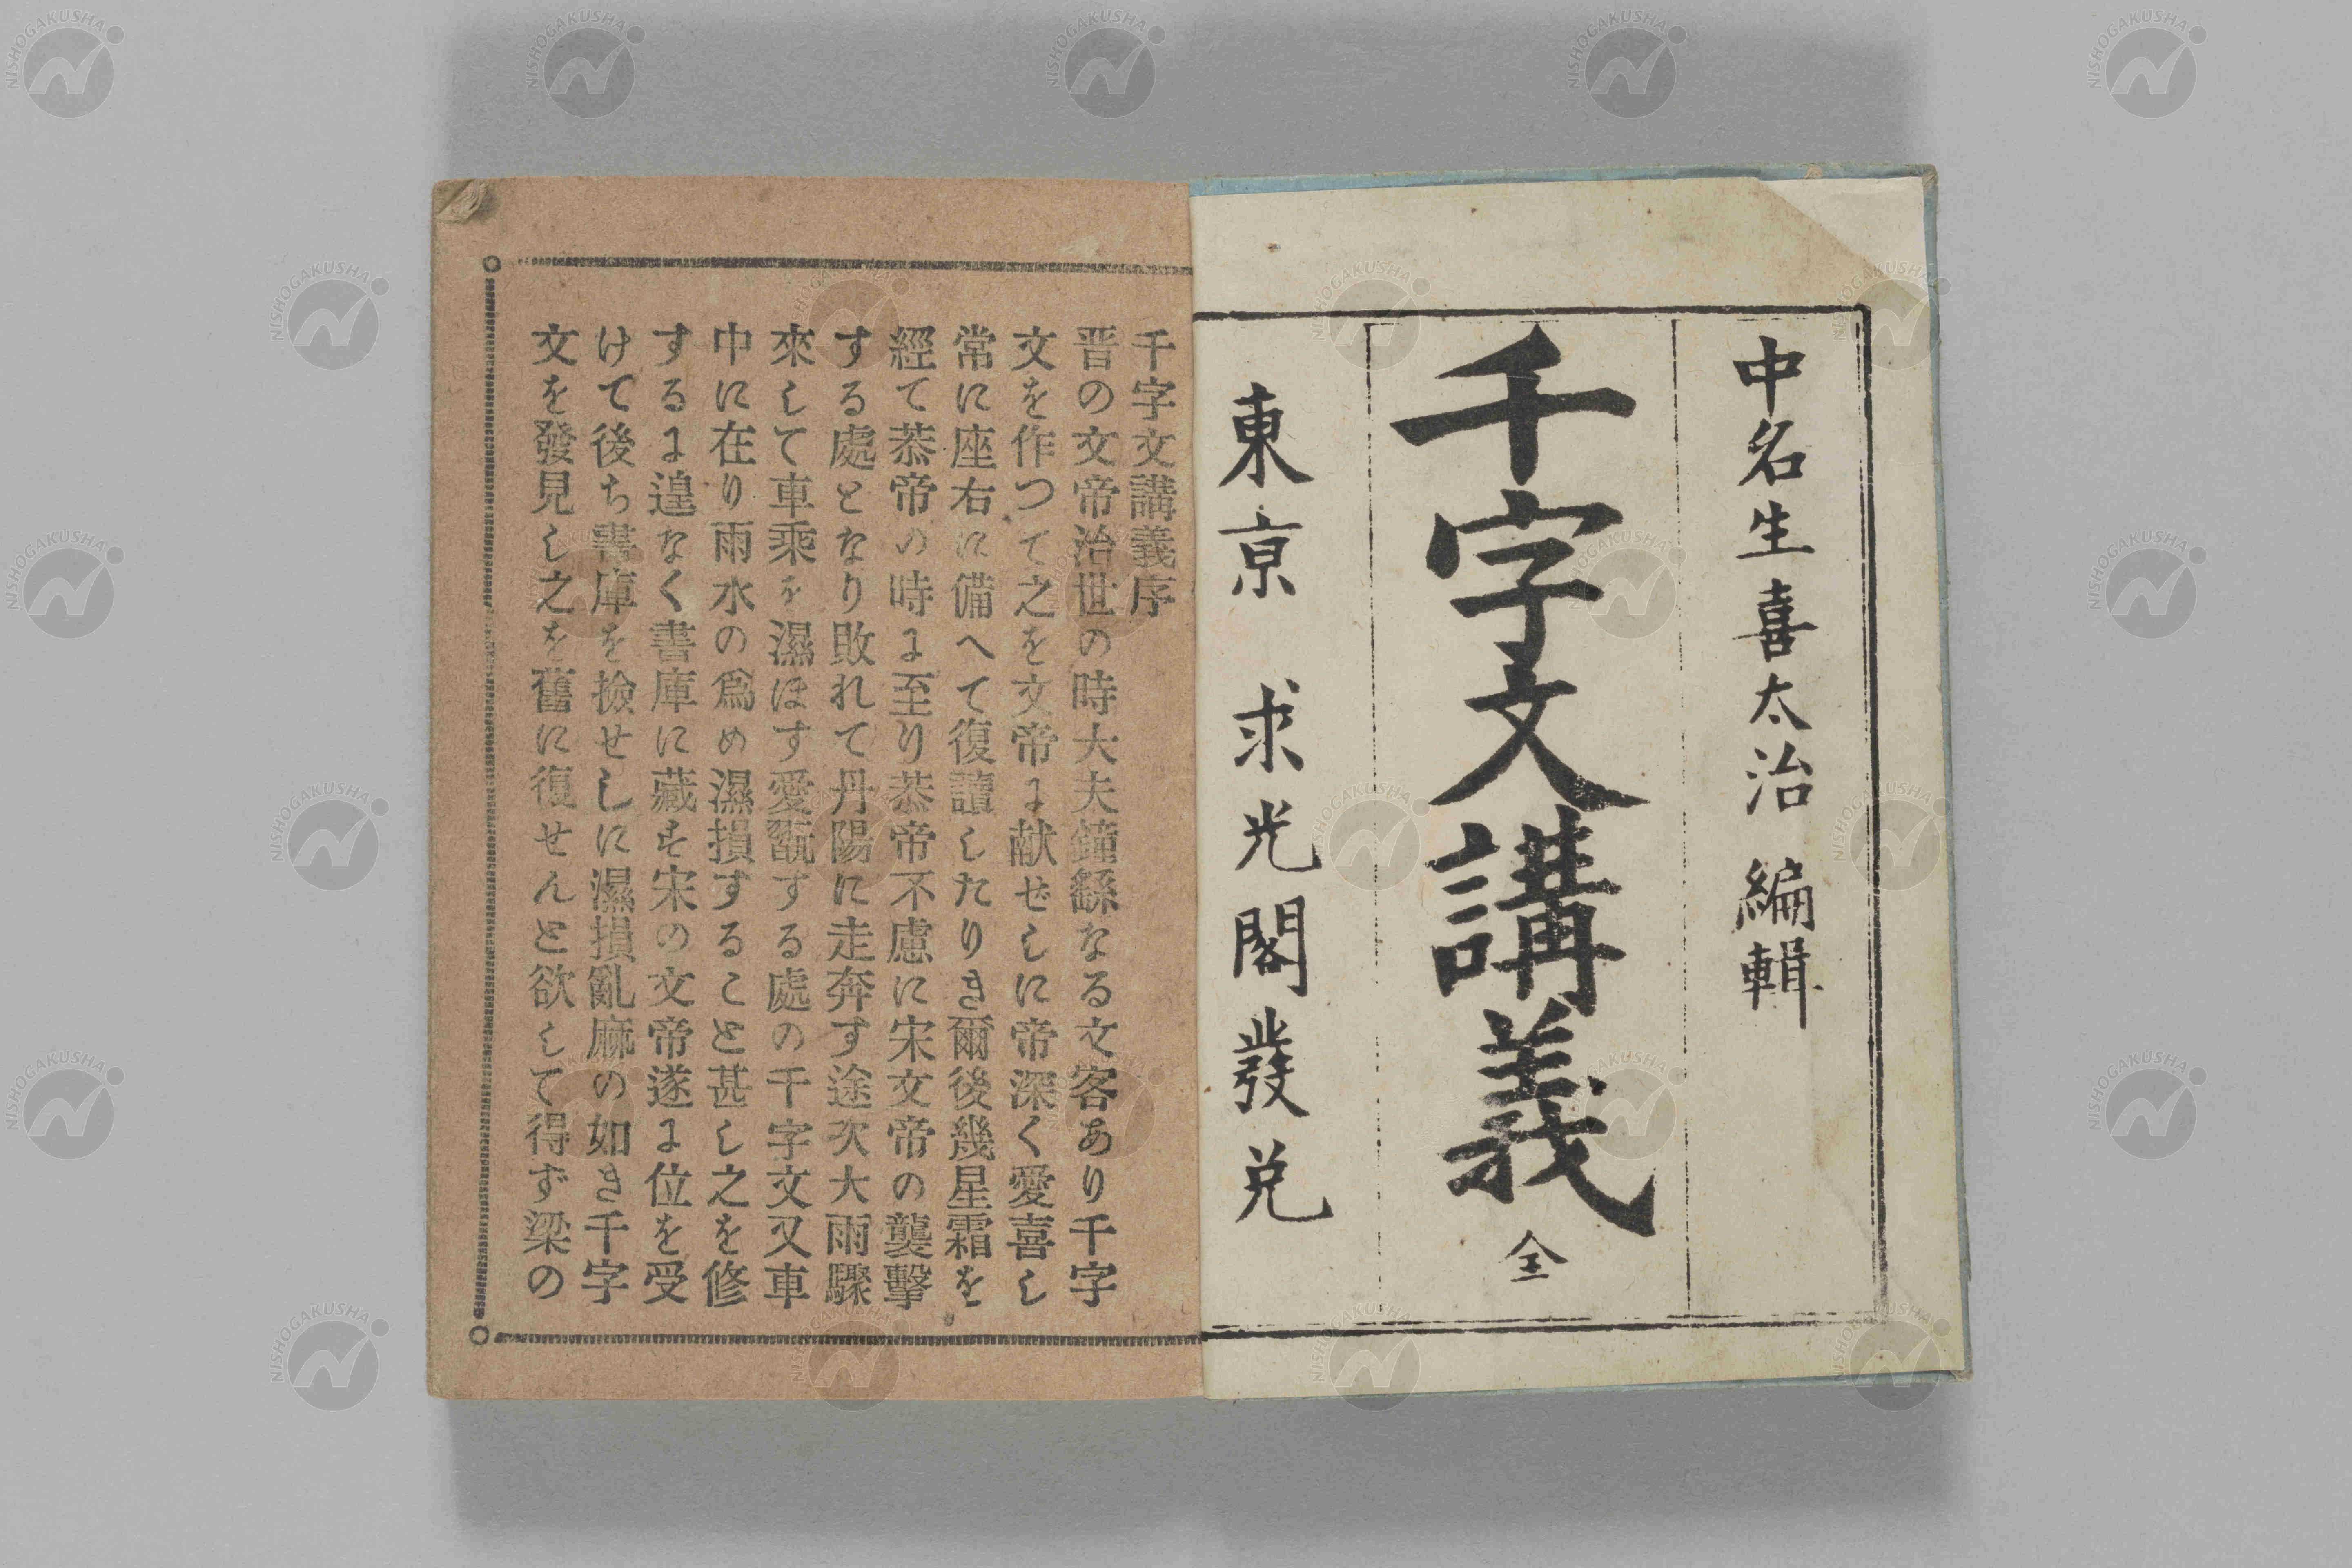 中名生喜太治 編輯
千字文講義 全
東京 求光閣發兌
千字文講義序
晋の文帝治世の時大夫鐘繇なる文客あり千字
文を作つて之を文帝に献せしに帝深く愛喜し
常に座右に備へて復讀したりき爾後幾星霜を
經て恭帝の時に至り恭帝不慮に宋文帝の襲擊
する處となり敗れて丹陽に走奔す途次大雨驟
來して車乘を濕ほす愛翫する處の千字文又車
中に在り雨水の爲め濕損すること甚し之を修
するに遑なく書庫に藏す宋の文帝遂に位を受
けて後ち書庫を撿せしに濕損亂麻の如き千字
文を發見し之を舊に復せんと欲して得ず梁の
NISHOGAKUSHA